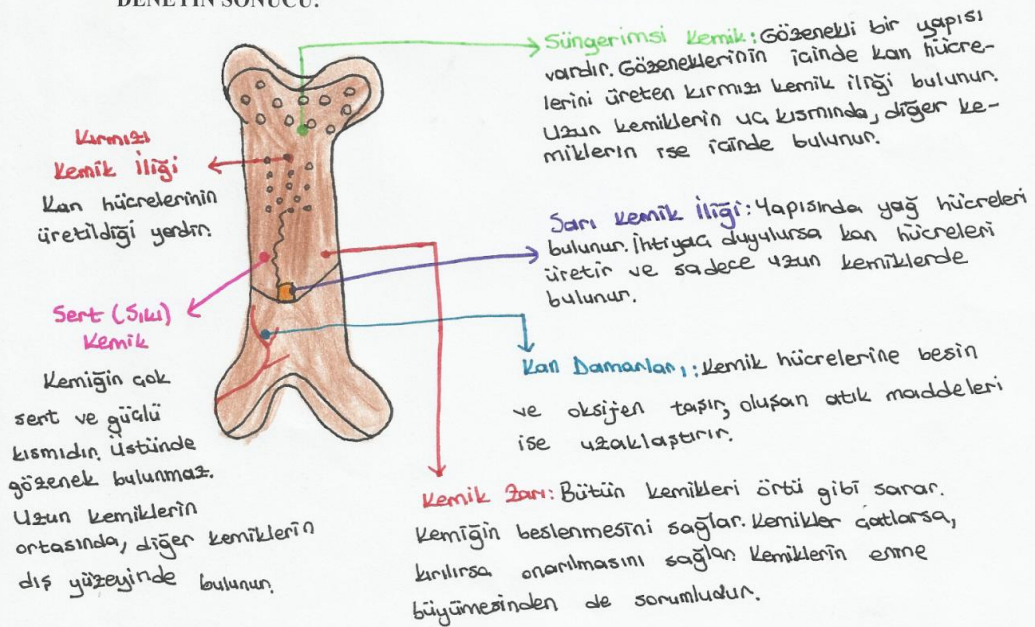 DENETİN SONUCU:
Süngerimsi Kemik: Gözenekli bir yapısı
vardır. Gözeneklerinin içinde kan hücre-
lerini üreten kırmızı kemik iliği bulunur.
Uzun kemiklerin uç kısmında, diğer ke-
miklerin ise içinde bulunur.
Kırmızı
Kemik İliği
Kan hücrelerinin
üretildiği yerdir.
Sarı Kemik İliği: Yapısında yağ hücreleri
bulunur. İhtiyaç duyulursa kan hücreleri
üretir ve sadece uzun kemiklerde
bulunur.
Sert (Sıkı)
Kemik
Kemiğin çok
sert ve güçlü
kısmıdır. Üstünde
gözenek bulunmaz.
Uzun kemiklerin
ortasında, diğer kemiklerin
dış yüzeyinde bulunur.
Kan Damarları: Kemik hücrelerine besin
ve oksijen taşır, oluşan atık maddeleri
ise uzaklaştırır.
Kemik Zarı: Bütün kemikleri örtü gibi sarar.
Kemiğin beslenmesini sağlar. Kemikler çatlarsa,
kırılırsa onarılmasını sağlar. Kemiklerin enine
büyümesinden de sorumludur.